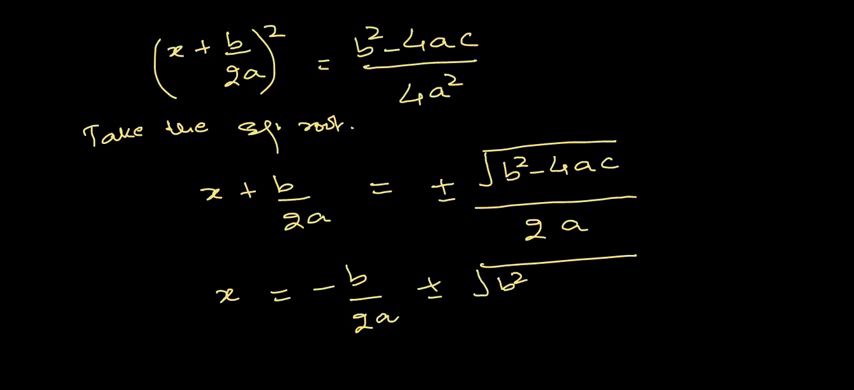 (x + b/2a)² = b² - 4ac / 4a²
Take the sq. root.
x + b/2a = ± √b² - 4ac / 2a
x = - b/2a ± √b²